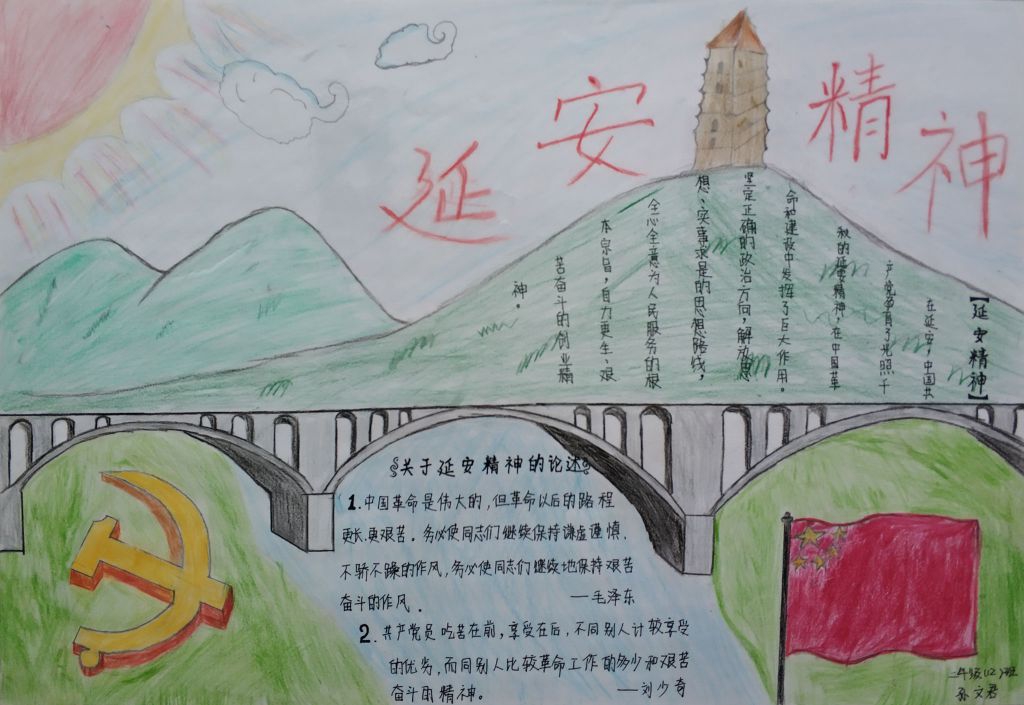 延安精神
【延安精神】
在延安，中国共
产党争育了光照千
秋的延安精神，在中国革
命和建设中发挥了巨大作用。
坚定正确的政治方向，解放思
想、实事求是的思想路线，
全心全意为人民服务的根
本宗旨，自力更生、艰
苦奋斗的创业精
神。
关于延安精神的论述
1.中国革命是伟大的，但革命以后的路程
更长.更艰苦。务必使同志们继续保持谦虚谨慎.
不骄不躁的作风，务必使同志们继续地保持艰苦
奋斗的作风。
—毛泽东
2.共产党员吃苦在前，享受在后，不同别人计较享受
的优劣，而同别人比较革命工作的多少和艰苦
奋斗的精神。
—刘少奇
二年级(12)班
孙文君